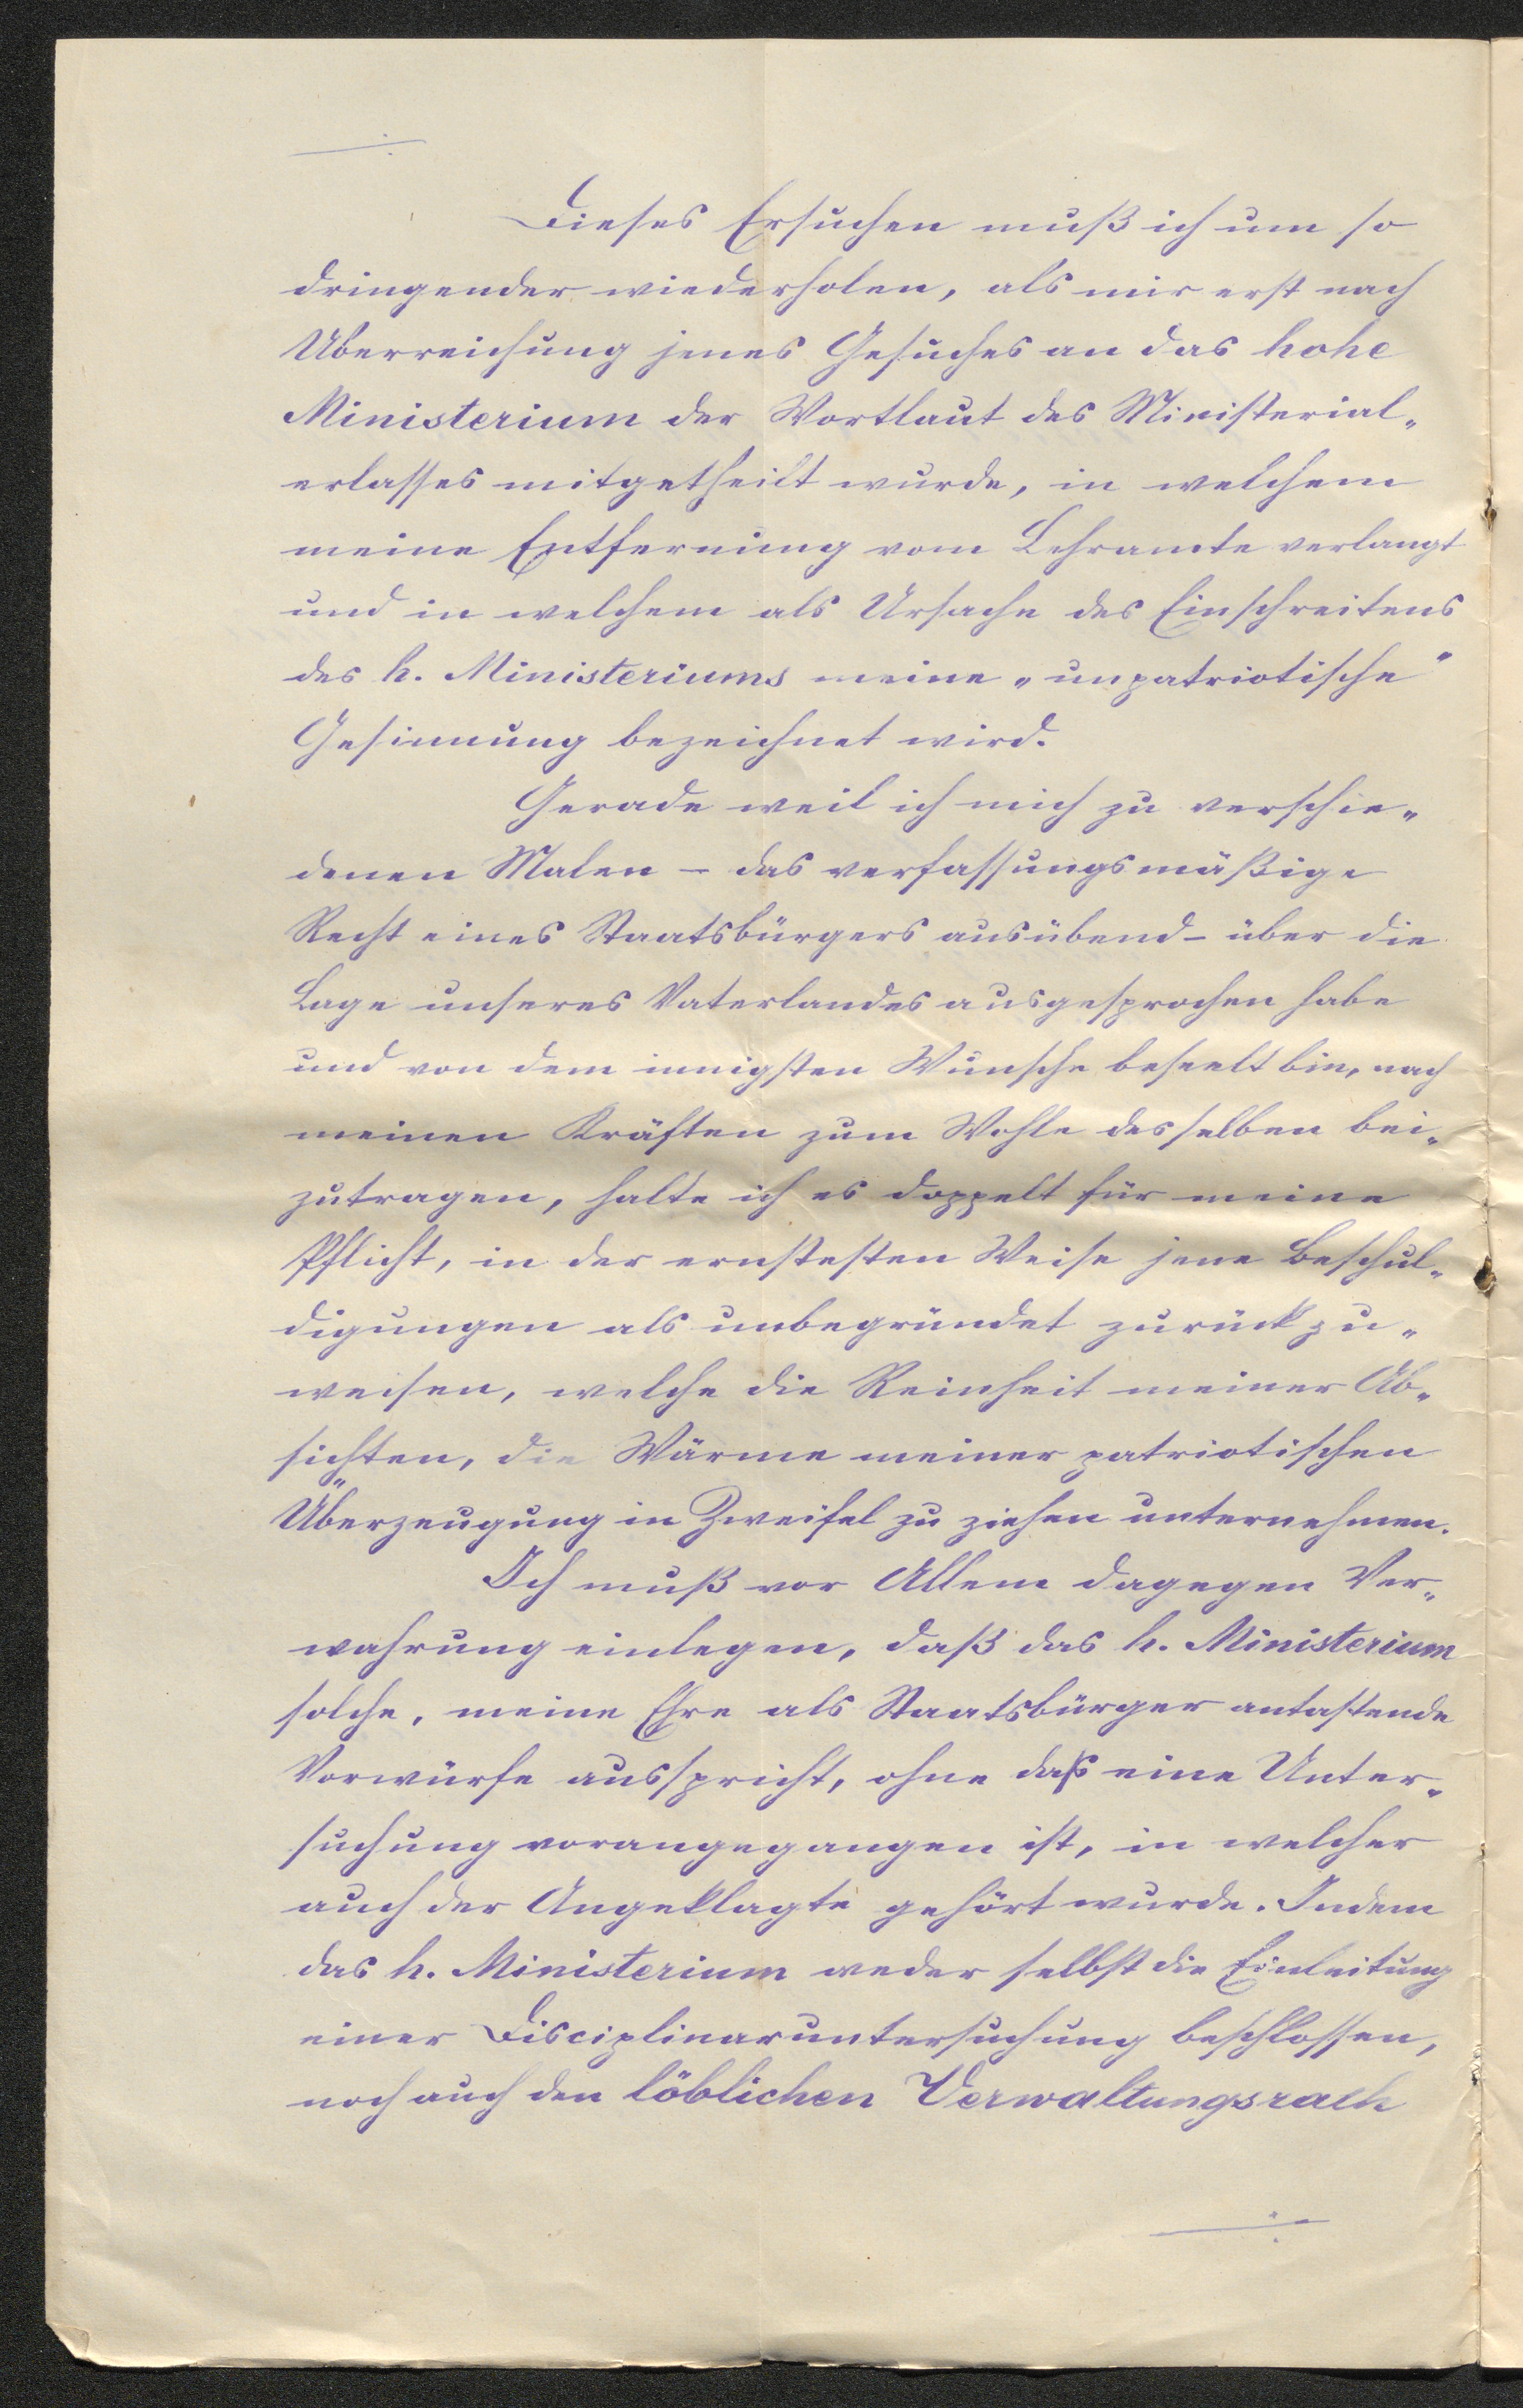 Dieses Ersuchen muß ich um so
dringender wiederholen, als mir erst nach
Überreichung jenes Gesuches an das hohe
Ministerium der Wortlaut des Ministerial„
erlasses mitgetheilt wurde, in welchem
meine Entfernung vom Lehramte verlangt
und in welchem als Ursache des Einschreitens
des h. Ministeriums meine „unpatriotische"
Gesinnung bezeichnet wird.
Gerade weil ich mich zu verschie„
denen Malen – das verfassungsmäßige
Recht eines Staatsbürgers ausübend – über die
Lage unseres Vaterlandes ausgesprochen habe
und von dem innigsten Wunsche beseelt bin, nach
meinen Kräften zum Wohle desselben bei„
zutragen, halte ich es doppelt für meine
Pflicht, in der ernstesten Weise jene Beschul„
digungen als unbegründet zurückzu„
weisen, welche die Reinheit meiner Ab„
sichten, die Wärme meiner patriotischen
Überzeugung in Zweifel zu ziehen unternehmen.
Ich muß vor Allem dagegen Ver„
wahrung einlegen, daß das h. Ministerium
solche, meine Ehre als Staatsbürger antastende
Vorwürfe ausspricht, ohne daß eine Unter„
suchung vorangegangen ist, in welcher
auch der Angeklagte gehört wurde. Indem
das h. Ministerium weder selbst die Einleitung
einer Disciplinaruntersuchung beschlossen,
noch auch den löblichen Verwaltungsrath